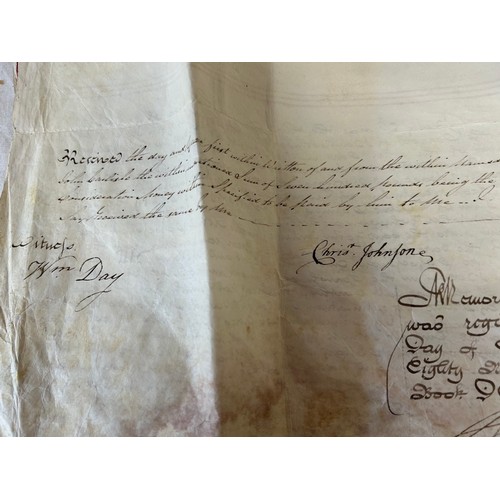 Received the day and year first within Written of and from the within named
John the within mentioned Sum of Hundred Pounds being the
Consideration Money within Specified to be paid by him to me
I say Received the same by me
Witness
Wm Day
Chrisr. Johnson
A Memor
was regi
Day of
Eighty N
Book D